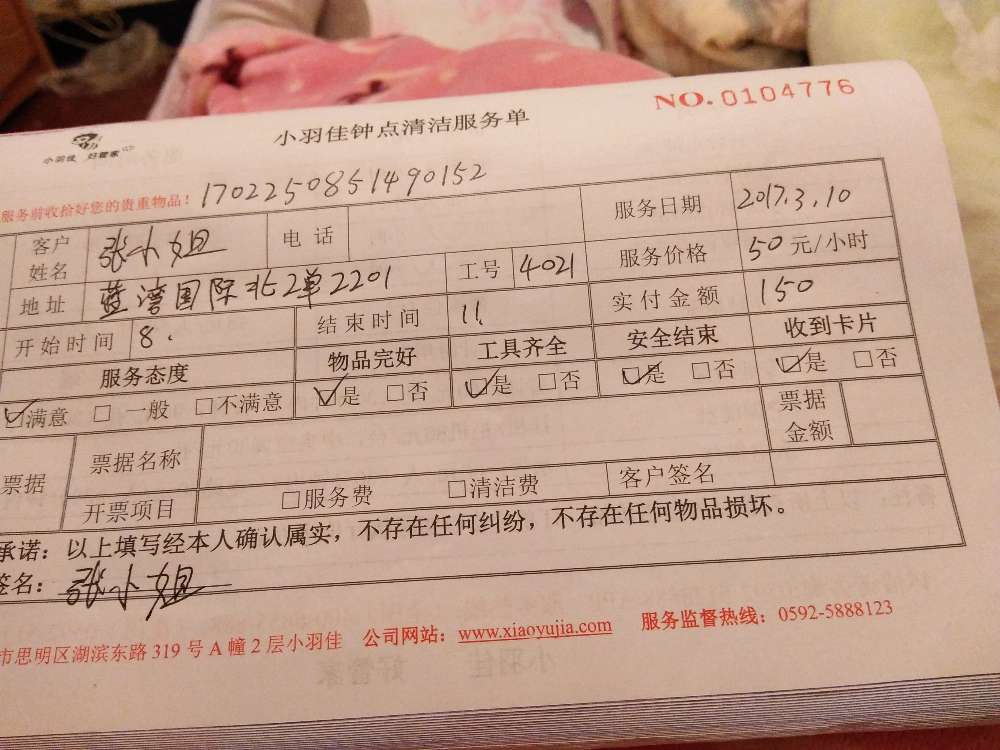 NO.0104776
小羽佳 好管家
小羽佳钟点清洁服务单
服务前收拾好您的贵重物品！1702250851490152
客户姓名 张小姐 电话 服务日期 2017.3.10
地址 蓝湾国际北2单2201 工号 4021 服务价格 50元/小时
开始时间 8. 结束时间 11. 实付金额 150
服务态度 物品完好 工具齐全 安全结束 收到卡片
☑满意 □一般 □不满意 ☑是 □否 ☑是 □否 ☑是 □否 ☑是 □否
票据 票据名称 票据金额
开票项目 □服务费 □清洁费 客户签名
承诺：以上填写经本人确认属实，不存在任何纠纷，不存在任何物品损坏。
签名：张小姐
市思明区湖滨东路319号A幢2层小羽佳 公司网站：www.xiaoyujia.com 服务监督热线：0592-5888123